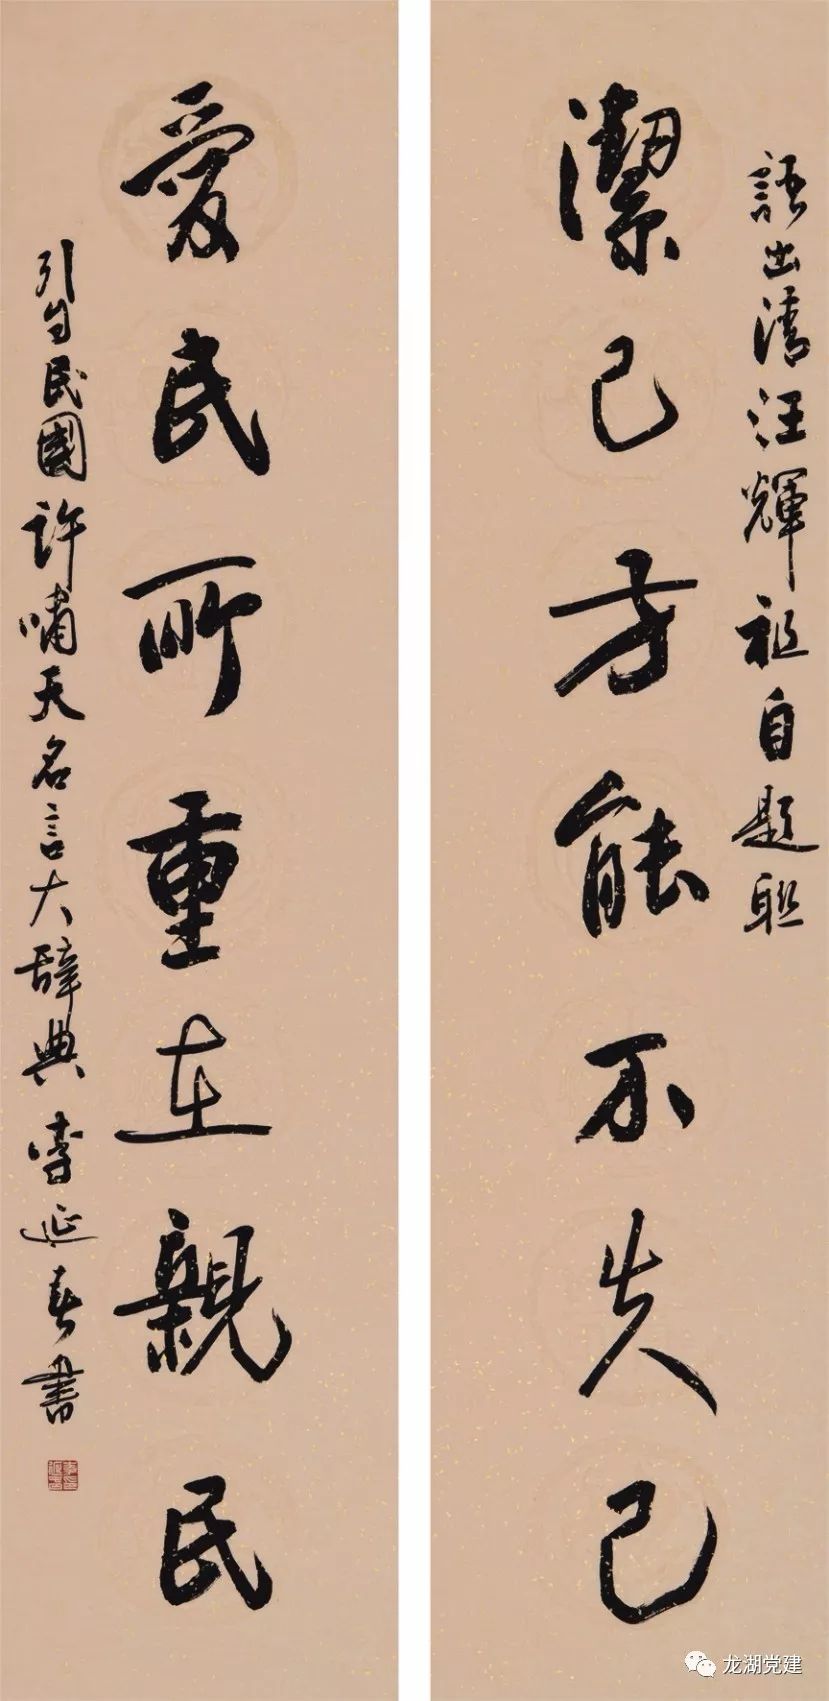 語出清汪輝祖自題联
潔己方能不失己
愛民所重在親民
引自民國許嘯天名言大辞典 李延春書
龙湖党建